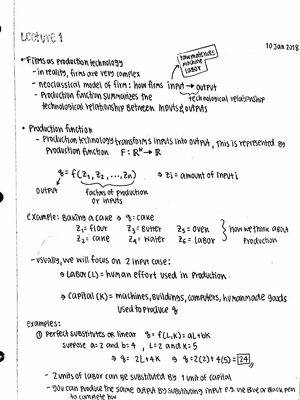 Lecture 1
10 Jan 2018
raw materials
machine
labor
• Firms as production technology
- in reality, firms are very complex
- neoclassical model of firm: how firms input → output
technological relationship
- Production function summarizes the
technological relationship between inputs & outputs
• Production function
- Production technology transforms inputs into output, this is represented by
Production function F: Rᴺ → R
q = f(z₁, z₂, ..., zn) ⇒ zi = amount of input i
output
factors of production
or inputs
example: Baking a cake ⇒ q = cake
z₁ = flour z₃ = butter z₅ = oven
z₂ = cane z₄ = water z₆ = labor
how we think about
production
- usually, we will focus on 2 input case:
⇒ Labor (L) = human effort used in production
⇒ Capital (K) = machines, buildings, computers, human made goods
used to produce q
examples:
① Perfect substitutes or linear q = f(L,K) = aL + bK
suppose a=2 and b=4, L=2 and K=5
⇒ q = 2L+4K ⇒ q = 2(2) + 4(5) = 24
- 2 units of labor can be substituted by 1 unit of capital
- you can produce the same output by substituting input e.g. use blue or black pen
to complete hw